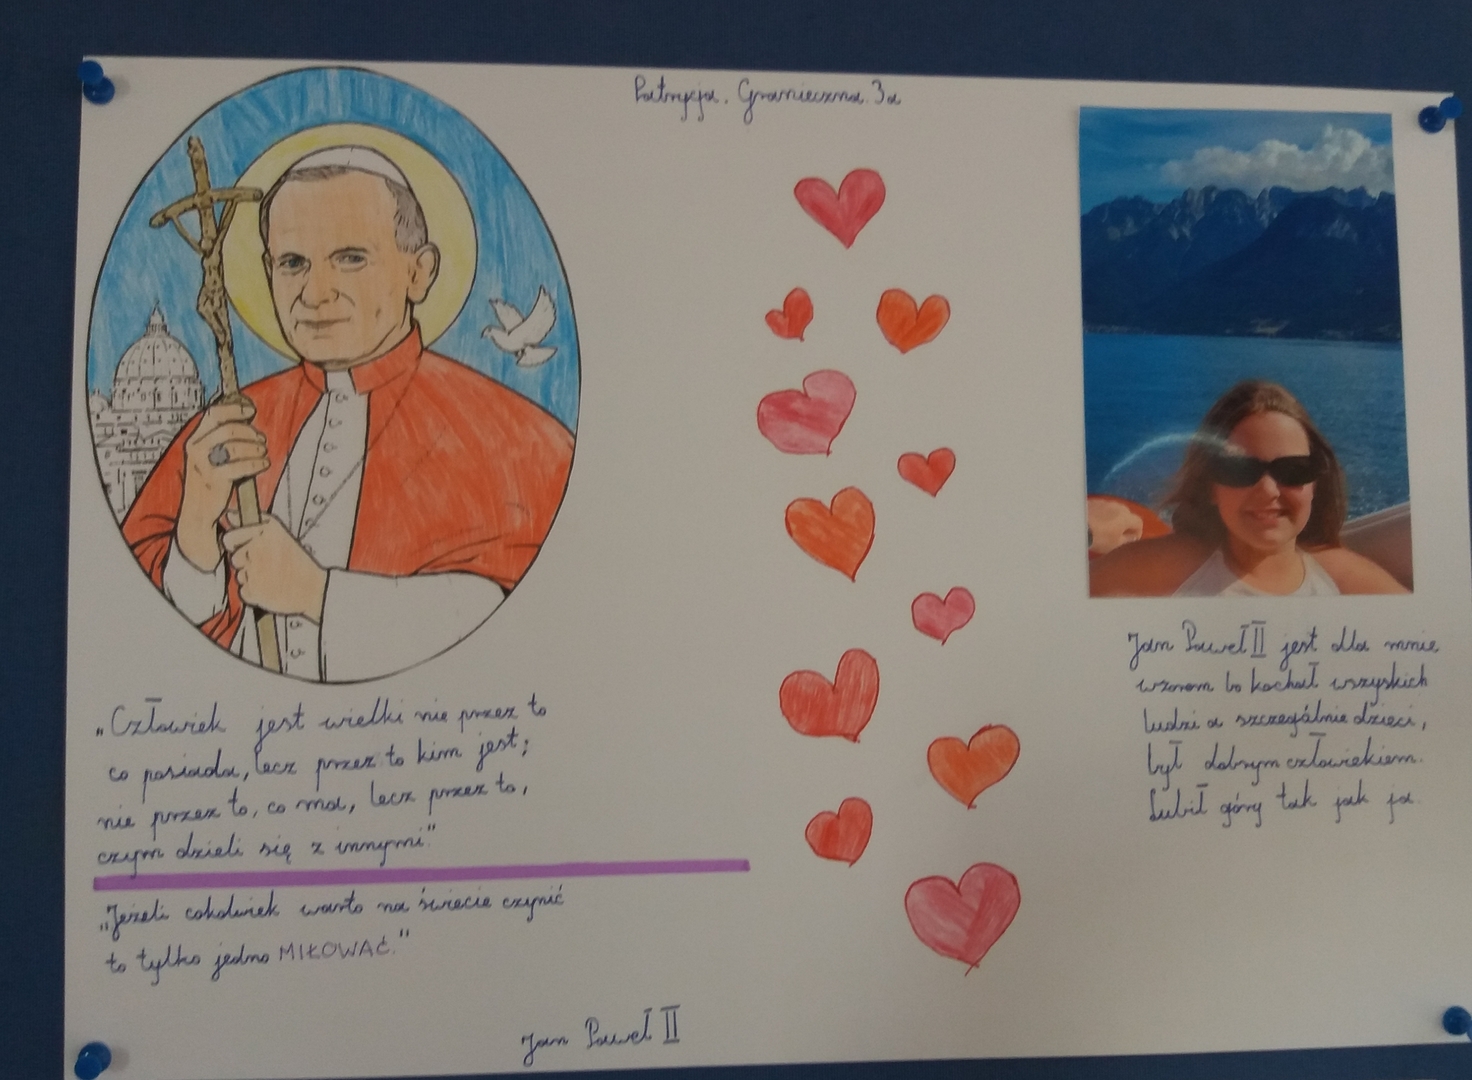 Patrycja Granieczna 3a
„Człowiek jest wielki nie przez to
co posiada, lecz przez to kim jest;
nie przez to, co ma, lecz przez to,
czym dzieli się z innymi"
„Jeżeli cokolwiek warto na świecie czynić
to tylko jedno MIŁOWAĆ."
Jan Paweł II
Jan Paweł II jest dla mnie
wzorem bo kochał wszyskich
ludzi a szczególnie dzieci,
był dobrym człowiekiem.
Lubił góry tak jak ja.